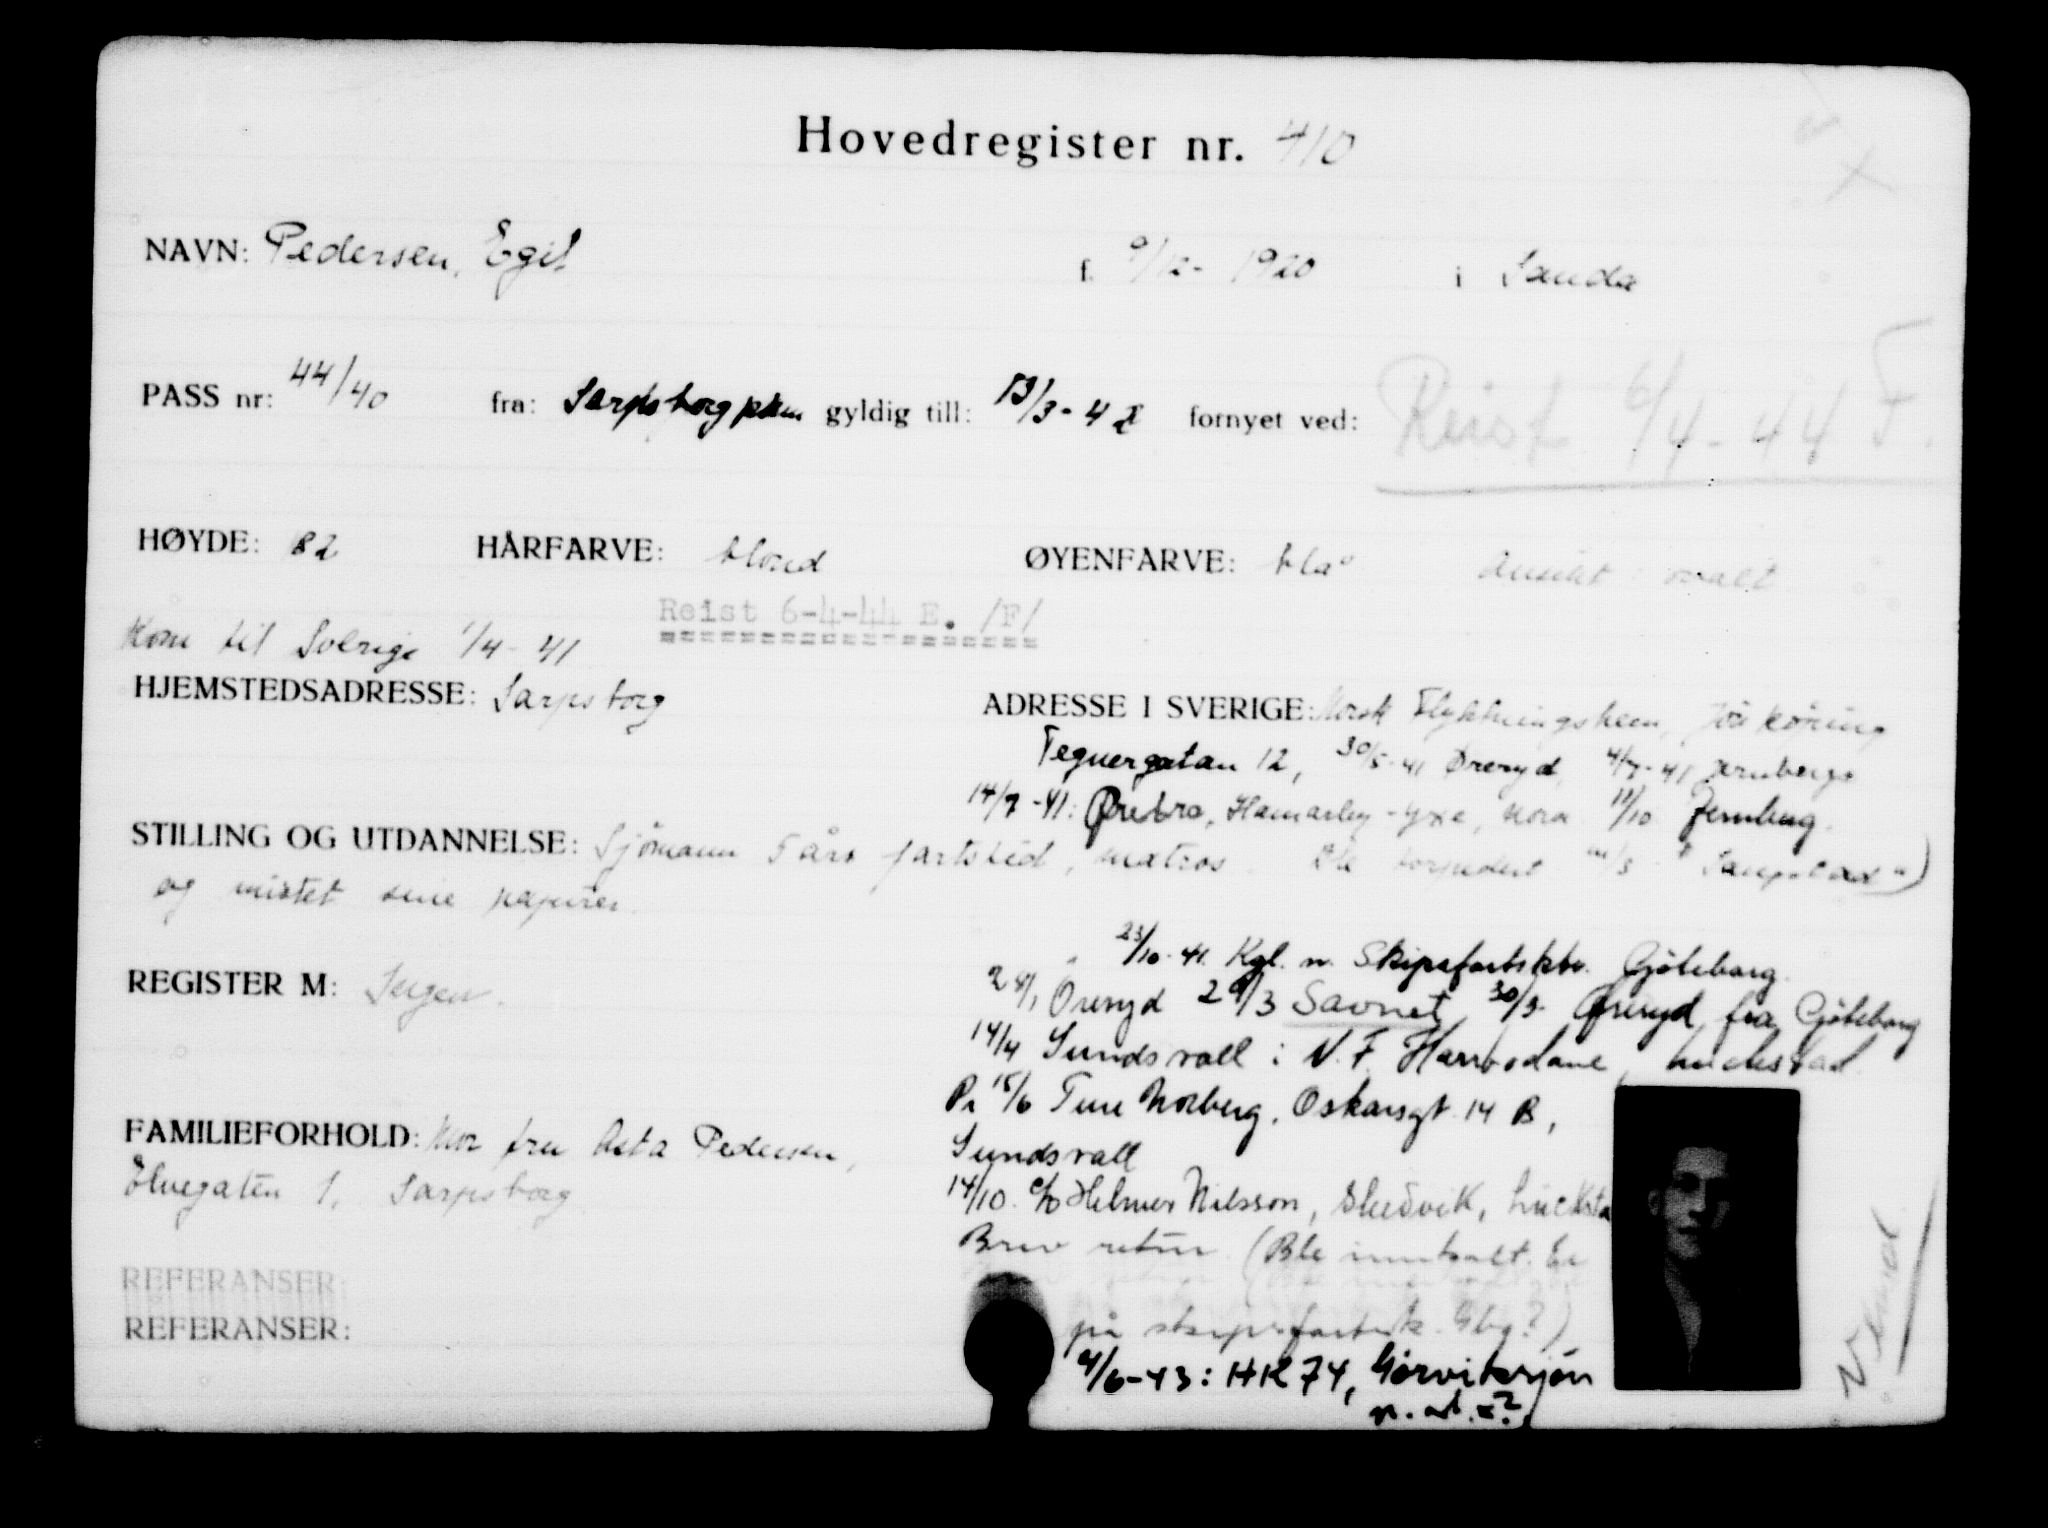 Hovedregister nr. 410
NAVN: Pedersen, Egil f. 9/12- 1920 i Sanda
PASS nr: 44/40 fra: Sarpsborg pkm gyldig till: 13/3-42 fornyet ved: Reist 6/4-44 F.
HØYDE: 82 HÅRFARVE: blond ØYENFARVE: blå Ansikt: ovalt
Reist 6-4-44 E. /F/
Kom til Sverige 1/4-41
HJEMSTEDSADRESSE: Sarpsborg
ADRESSE I SVERIGE: Norsk Flyktningshem, Jönköping
Tegnergatan 12, 30/5-41 Øreryd, 4/7-41
14/7-41: Ørebro, Hamarby-Yxe, Nora 11/10 Jernberg.
STILLING OG UTDANNELSE: Sjömann 5 års fartstid, matros. Ble torpedert
og mistet sine papirer.
23/10-41. Kgl. n. Skipsfartsktr. Gøteborg.
REGISTER M: Ingen.
28/1 Öreryd 29/3 Savnet 30/3- Øreryd fra Gøteborg
14/4 Sundsvall i N.F.
Pr 15/6 Ture Norberg, Oskarsgt. 14 B,
Sundsvall
FAMILIEFORHOLD: Mor fru Asta Pedersen,
Elvegaten 1, Sarpsborg
14/10. c/o Helmer Nilsson, Skedvik, Lucksta
Brev retur. (Ble innkalt. Er
på skipsfartsk. Gbg?)
REFERANSER:
REFERANSER:
4/6-43: HK 74, Gørviksjön